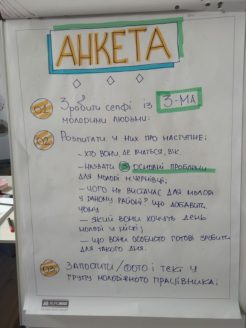 АНКЕТА
01 Зробити селфі із 3-МА
молодими людьми.
02 Розпитати у них про наступне:
– Хто вони, де вчаться, вік.
– Назвати 3 основні проблеми
для молоді м. Чернівці.
– Чого не вистачає для молоді
у даному районі? Що добавить,
чому?
– Який вони хочуть день
молоді у місті;
– Що вони особисто готові зробити
для такого дня.
Запостити/фото і текст у
групу молодіжного працівника.